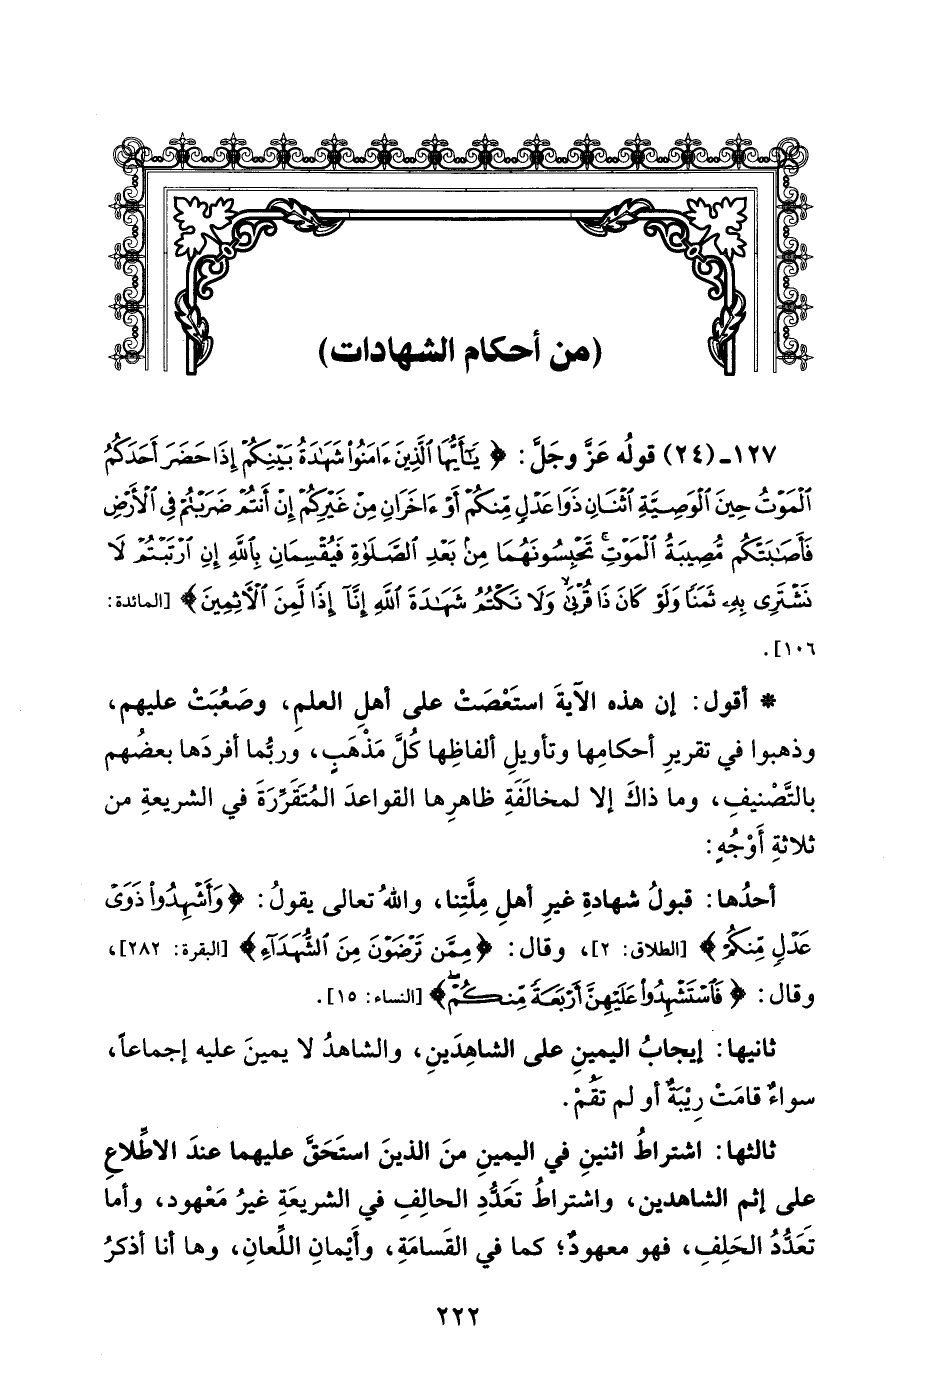 (من أحكام الشهادات)
١٢٧ـ (٢٤) قولُه عَزَّ وجَلَّ: ﴿ يَٰٓأَيُّهَا ٱلَّذِينَ ءَامَنُوا۟ شَهَٰدَةُ بَيْنِكُمْ إِذَا حَضَرَ أَحَدَكُمُ
ٱلْمَوْتُ حِينَ ٱلْوَصِيَّةِ ٱثْنَانِ ذَوَا عَدْلٍ مِّنكُمْ أَوْ ءَاخَرَانِ مِنْ غَيْرِكُمْ إِنْ أَنتُمْ ضَرَبْتُمْ فِى ٱلْأَرْضِ
فَأَصَٰبَتْكُم مُّصِيبَةُ ٱلْمَوْتِ ۚ تَحْبِسُونَهُمَا مِنۢ بَعْدِ ٱلصَّلَوٰةِ فَيُقْسِمَانِ بِٱللَّهِ إِنِ ٱرْتَبْتُمْ لَا
نَشْتَرِى بِهِۦ ثَمَنًا وَلَوْ كَانَ ذَا قُرْبَىٰ ۙ وَلَا نَكْتُمُ شَهَٰدَةَ ٱللَّهِ إِنَّآ إِذًا لَّمِنَ ٱلْءَاثِمِينَ﴾ [المائدة:
١٠٦].
* أقول: إن هذه الآيةَ استَعْصَتْ على أهلِ العلمِ، وصَعُبَتْ عليهم،
وذهبوا في تقريرِ أحكامِها وتأويلِ ألفاظِها كُلَّ مَذْهَبٍ، وربُّما أفردَها بعضُهم
بالتَّصْنيفِ، وما ذاكَ إلا لمخالَفَةِ ظاهرِها القواعدَ المُتَقَرِّرَةَ في الشريعةِ من
ثلاثةِ أَوْجُهٍ:
أحدُها: قبولُ شهادةِ غيرِ أهلِ مِلَّتِنا، واللهُ تعالى يقولُ: ﴿وَأَشْهِدُوا۟ ذَوَىْ
عَدْلٍ مِّنكُمْ﴾ [الطلاق: ٢]، وقال: ﴿مِمَّن تَرْضَوْنَ مِنَ ٱلشُّهَدَآءِ﴾ [البقرة: ٢٨٢]،
وقال: ﴿ فَٱسْتَشْهِدُوا۟ عَلَيْهِنَّ أَرْبَعَةً مِّنكُمْ ۖ﴾ [النساء: ١٥].
ثانيها: إيجابُ اليمينِ على الشاهِدَينِ، والشاهدُ لا يمينَ عليه إجماعاً،
سواءٌ قامَتْ رِيْبَةٌ أو لم تَقُمْ.
ثالثها: اشتراطُ اثنينِ في اليمينِ منَ الذينَ استَحَقَّ عليهما عندَ الاطِّلاعِ
على إثم الشاهدين، واشتراطُ تَعَدُّدِ الحالِفِ في الشريعَةِ غيرُ مَعْهود، وأما
تَعَدُّدُ الحَلِفِ، فهو معهودٌ؛ كما في القَسامَةِ، وأَيْمانِ اللِّعان، وها أنا أذكرُ
٢٢٢